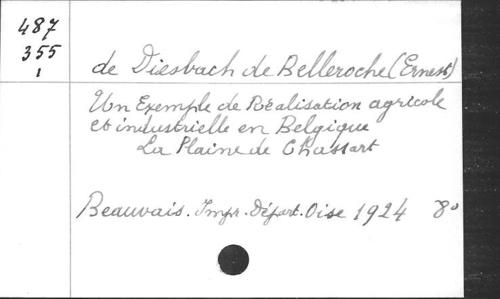 487
355
1
de Diesbach de Belleroche (Ernest)
Un Exemple de Réalisation agricole
et industrielle en Belgique
La Plaine de Chassart
Beauvais. Impr. Départ. Oise 1924 8°